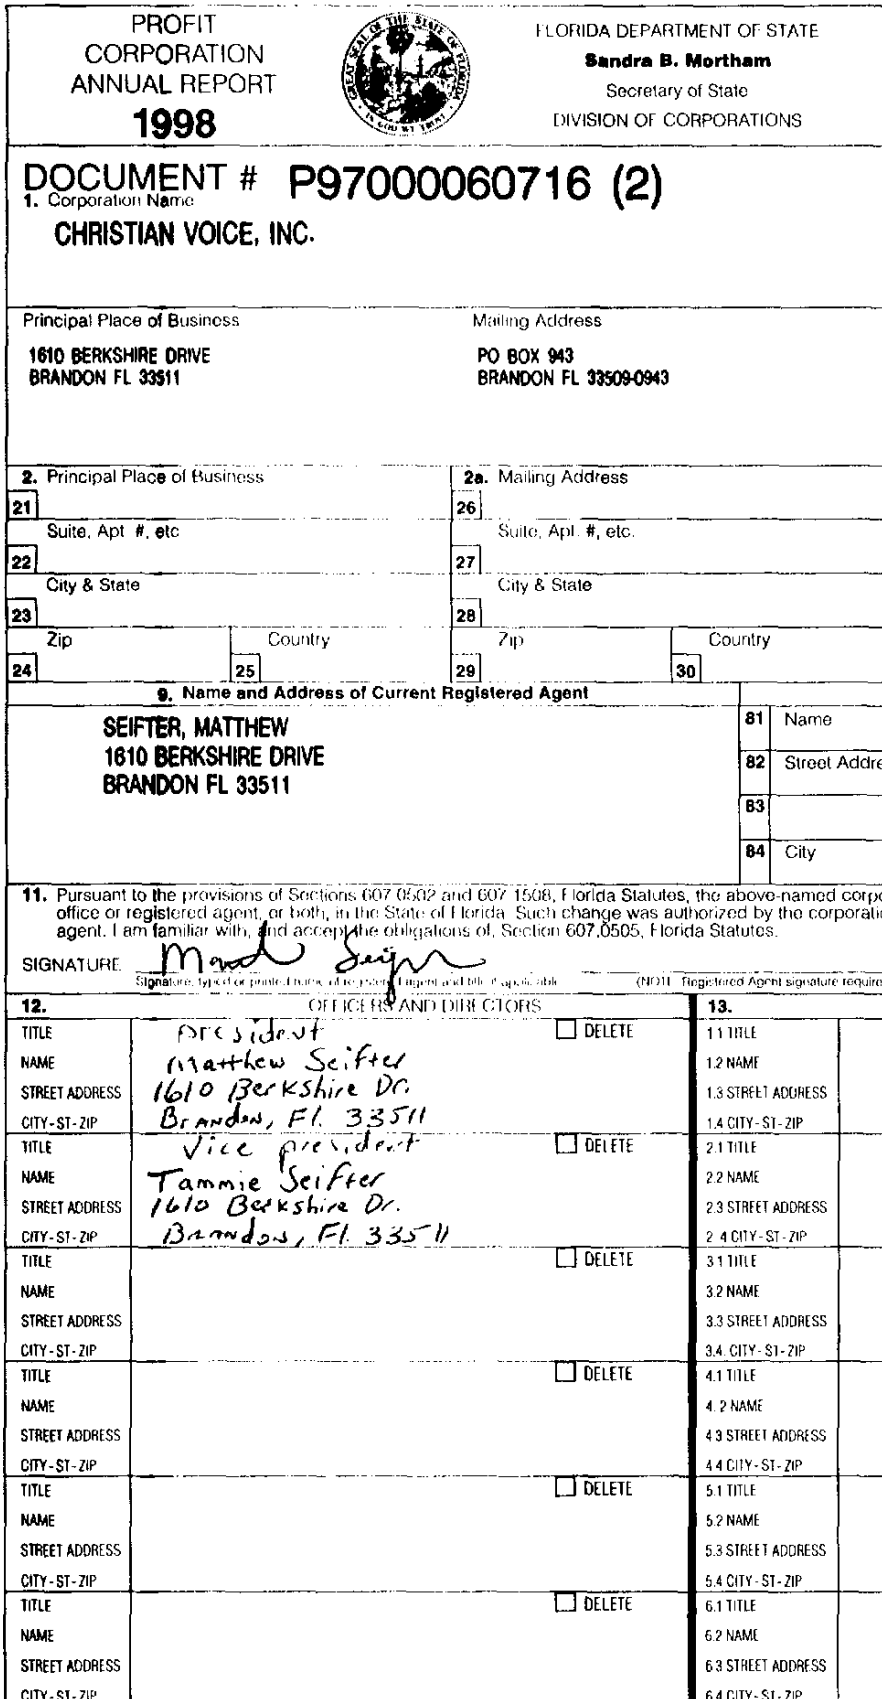 PROFIT
CORPORATION
ANNUAL REPORT
1998
GREAT SEAL OF THE STATE OF FLORIDA
IN GOD WE TRUST
FLORIDA DEPARTMENT OF STATE
Sandra B. Mortham
Secretary of State
DIVISION OF CORPORATIONS
DOCUMENT # P97000060716 (2)
1. Corporation Name
CHRISTIAN VOICE, INC.
Principal Place of Business
Mailing Address
1610 BERKSHIRE DRIVE
BRANDON FL 33511
PO BOX 943
BRANDON FL 33509-0943
2. Principal Place of Business
2a. Mailing Address
21
26
Suite, Apt #, etc
Suite, Apt. #, etc.
22
27
City & State
City & State
23
28
Zip
Country
Zip
Country
24
25
29
30
9. Name and Address of Current Registered Agent
SEIFTER, MATTHEW
1610 BERKSHIRE DRIVE
BRANDON FL 33511
81 Name
82 Street Addre
83
84 City
11. Pursuant to the provisions of Sections 607 0502 and 607 1508, Florida Statutes, the above-named corpo
office or registered agent, or both, in the State of Florida Such change was authorized by the corporati
agent. I am familiar with, and accept the obligations of, Section 607.0505, Florida Statutes.
SIGNATURE
Signature, typed or printed name of registered agent and title if applicable
(NOTE Registered Agent signature require
12. OFFICERS AND DIRECTORS
13.
TITLE president DELETE
NAME Matthew Seifter
STREET ADDRESS 1610 Berkshire Dr.
CITY-ST-ZIP Brandon, Fl. 33511
1.1 TITLE
1.2 NAME
1.3 STREET ADDRESS
1.4 CITY-ST-ZIP
TITLE Vice president DELETE
NAME Tammie Seifter
STREET ADDRESS 1610 Berkshire Dr.
CITY-ST-ZIP Brandon, Fl. 33511
2.1 TITLE
2.2 NAME
2.3 STREET ADDRESS
2 4 CITY-ST-ZIP
TITLE DELETE
NAME
STREET ADDRESS
CITY-ST-ZIP
3.1 TITLE
3.2 NAME
3.3 STREET ADDRESS
3.4. CITY-ST-ZIP
TITLE DELETE
NAME
STREET ADDRESS
CITY-ST-ZIP
4.1 TITLE
4.2 NAME
4.3 STREET ADDRESS
4.4 CITY-ST-ZIP
TITLE DELETE
NAME
STREET ADDRESS
CITY-ST-ZIP
5.1 TITLE
5.2 NAME
5.3 STREET ADDRESS
5.4 CITY-ST-ZIP
TITLE DELETE
NAME
STREET ADDRESS
CITY-ST-ZIP
6.1 TITLE
6.2 NAME
6.3 STREET ADDRESS
6.4 CITY-ST-ZIP